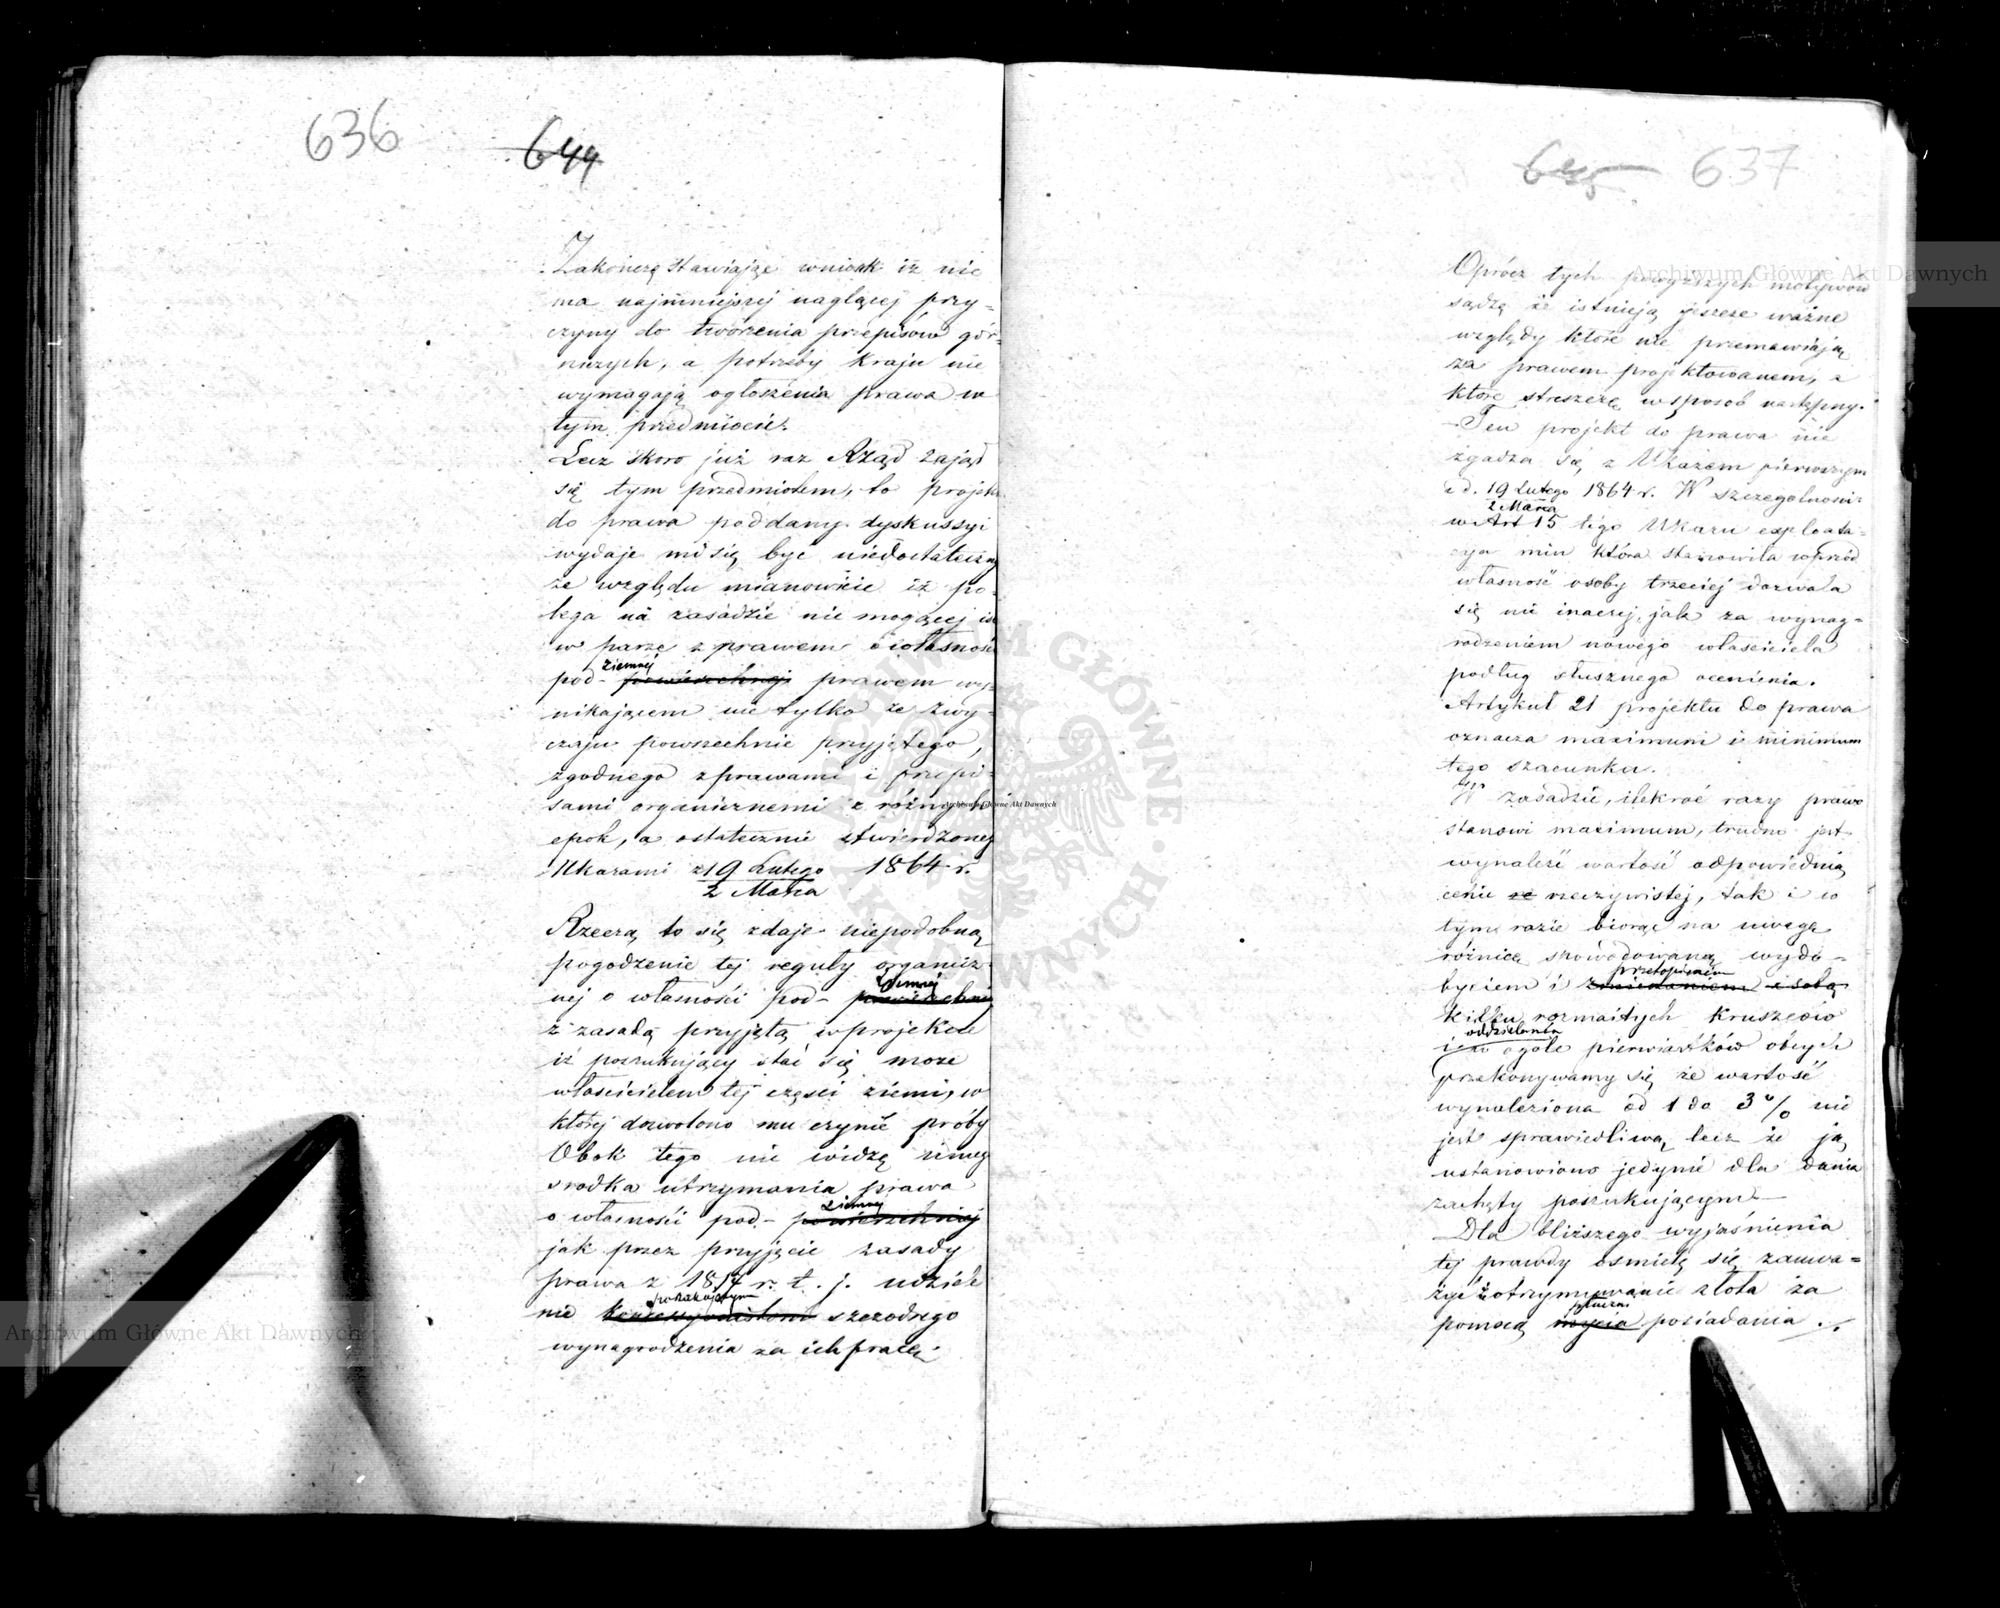 636
644
Zakończę stawiając wniosek iż nie
ma najmniejszej naglącej przy-
czyny do tworzenia przepisów gór-
niczych, a potrzeby kraju nie
wymagają ogłoszenia prawa w
tym przedmiocie.
Lecz skoro już raz Rząd zajął
się tym przedmiotem, to projekt
do prawa poddany dyskussyi
wydaje mi się być niedostateczny
ze względu mianowicie iż po-
lega na zasadzie nie mogącej iść
w parze z prawem o własności
ziemnej
pod- powierzchnej prawem wy-
nikającem nie tylko ze zwy-
czaju powszechnie przyjętego,
zgodnego z prawami i przepi-
sami organicznemi z różnych
epok, a ostatecznie stwierdzonej
Ukazami z 19 Lutego 1864 r.
2 Marca
Rzeczą to się zdaje niepodobną
pogodzenie tej reguły organicz-
ziemnej
nej o własności pod- powierzchniej
z zasadą przyjętą w projekcie
iż poszukujący stać się może
właścicielem tej części ziemi, w
której dozwolono mu czynić próby
Obok tego nie widzę innego
srodka utrzymania prawa
ziemnej
o własności pod- powierzchniej
jak przez przyjęcie zasady
prawa z 1817 r. t. j. udziele
poszukującym
nie koncessyonistom szczodrego
wynagrodzenia za ich pracę.
645 637
Oprócz tych powyższych motywów
sądzę że istnieją jeszcze ważne
względy które nie przemawiają
za prawem projektowanem, a
które streszczę w sposób następny.
- Ten projekt do prawa nie
zgadza się z Ukazem pierwszym
z d. 19 Lutego 1864 r. W szczegolności
2 Marca
w Art 15 tego Ukazu exploata-
cya min która stanowiła wprzód
własność osoby trzeciej dozwala
się nie inaczej, jak za wynag-
rodzeniem nowego właściciela
podług słusznego ocenienia.
Artykuł 21 projektu do prawa
oznacza maximum i minimum
tego szacunku.
W zasadzie, ilekroć razy prawo
stanowi maximum, trudno jest
wynaleźć wartość odpowiednią
cenie ze rzeczywistej, tak i w
tym razie biorąc na uwagę
różnicę spowodowaną wydo-
przetopieniem
byciem i zmieszaniem z sobą
kilku rozmaitych kruszców
oddzielenia
i w ogóle pierwiastków obcych
przekonywamy się że wartość
wynaleziona od 1 do 3% nie
jest sprawiedliwą lecz że ją
ustanowiono jedynie dla dania
zachęty poszukującym. —
Dla bliższego wyjaśnienia
tej prawdy ośmielę się zauwa-
żyć że otrzymywanie złota za
płuczni
pomocą mycia posiadania .
Archiwum Główne Akt Dawnych
Archiwum Główne Akt Dawnych
Archiwum Główne Akt Dawnych
ARCHIWUM GŁÓWNE AKT DAWNYCH